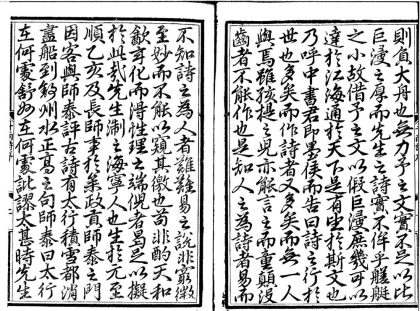 則負大舟也無力予之文實不足以比
巨浸之厚而先生之詩實不侔乎艨艟
之小故借予之文以假巨浸庶幾可以
達於江海通於天下是有望於斯文也
乃呼中書君即墨侯而告曰詩之行於
世也多矣而作詩者又多矣而無一人
與焉雖孩提之兒亦能言之而童顛沒
齒者不能作也是知人之為詩者易而
不知詩之為人者難難易之說非窮微
至妙而不能以賾其微也苟非酌天和
歙年化而得性理之端倪者曷足以擬
於此哉先生淛之海寧人也生於元至
順乙亥及長師事於叅政貢師泰之門
因客與師泰評古詩有太行積雪都消
盡船到鈞州水正高之句師泰曰太行
在何處州在何處訛謬太甚時先生